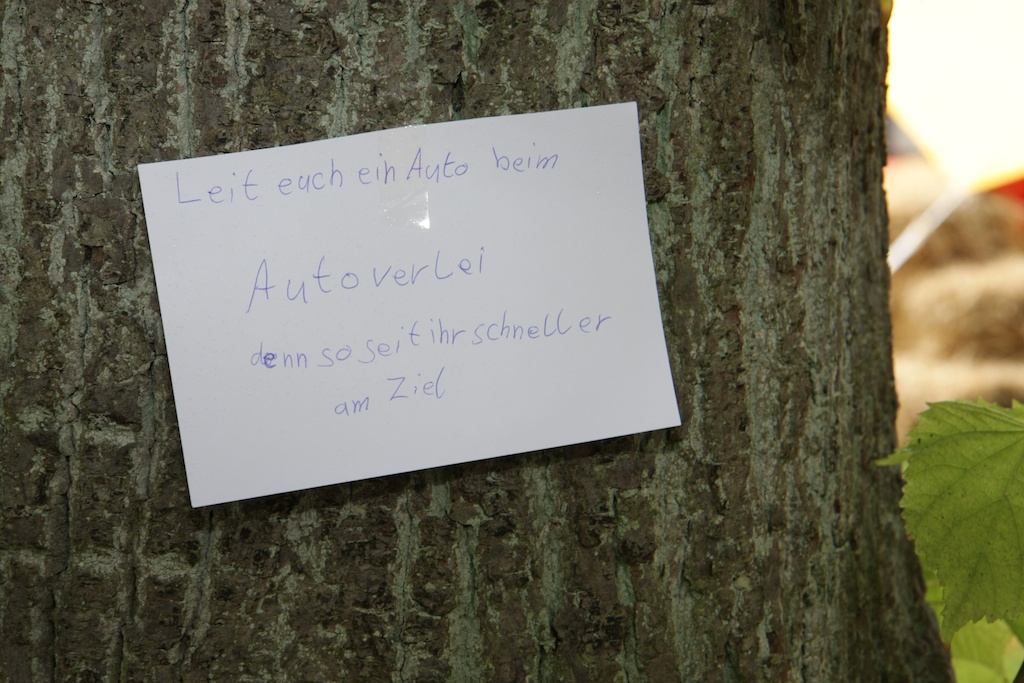 Leit euch ein Auto beim
Autoverlei
denn so seit ihr schneller
am Ziel